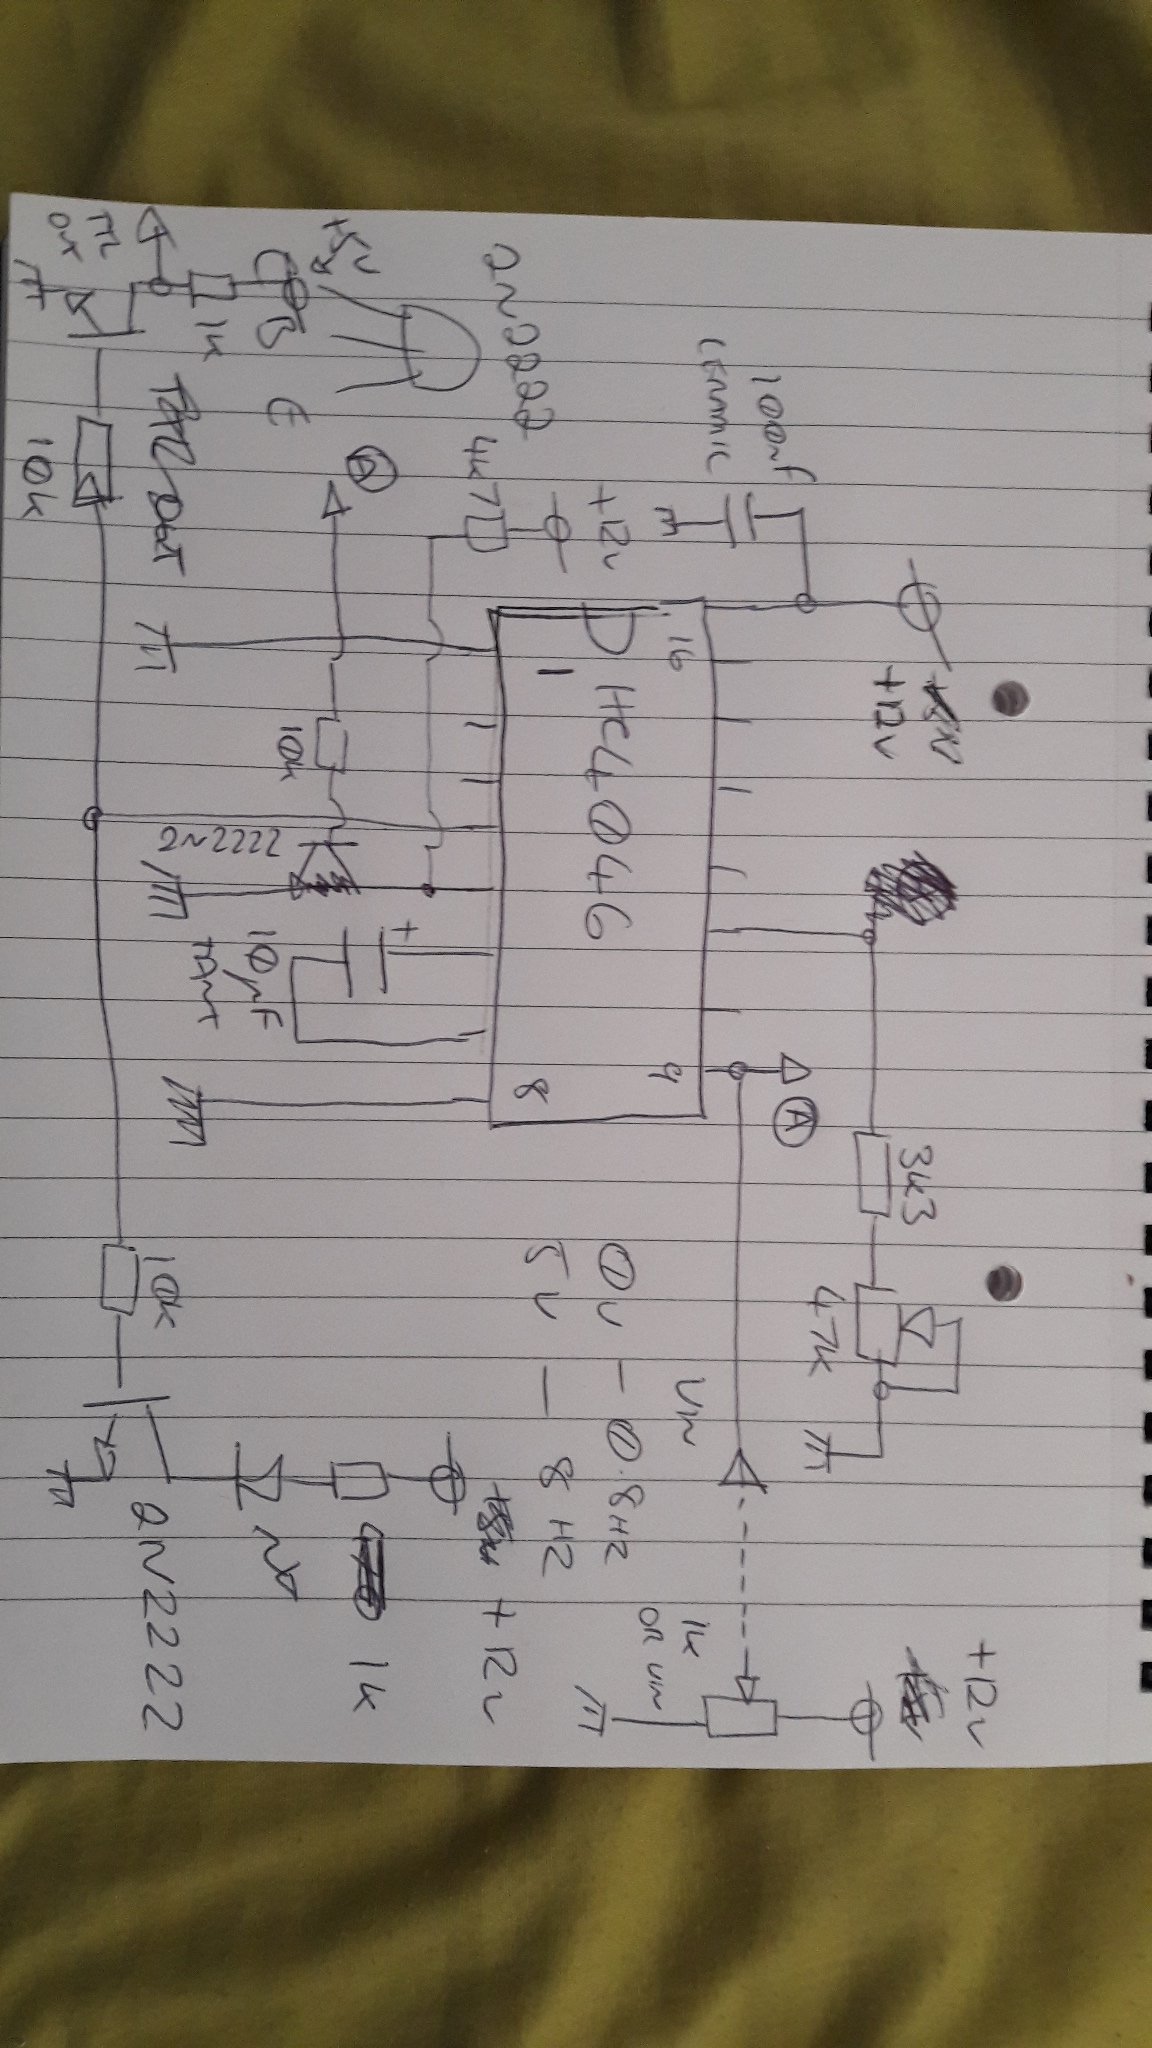 +12V
+12V
100nF
CERAMIC
+12V
2N2222
4K7
+5V
C
B
E
1K
TTL
OUT
TTL OUT
10K
A
16
HC4046
1
9
8
A
10K
2N2222
+
10µF
TANT
3K3
47K
VIN
0V - 0.8HZ
5V - 8HZ
1K
OR VIN
+12V
1K
10K
2N2222